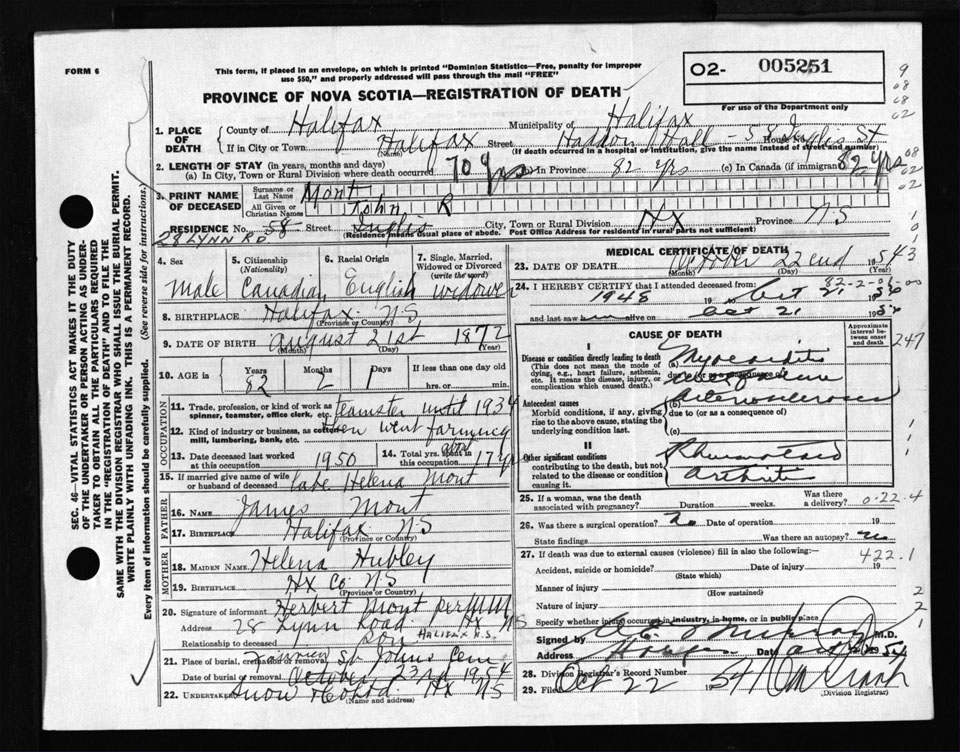 FORM 6
This form, if placed in an envelope, on which is printed "Dominion Statistics—Free, penalty for improper
use $50," and properly addressed will pass through the mail "FREE"
O2- 005251
For use of the Department only
PROVINCE OF NOVA SCOTIA—REGISTRATION OF DEATH
SEC. 46—VITAL STATISTICS ACT MAKES IT THE DUTY
OF THE UNDERTAKER OR PERSON ACTING AS UNDERTAKER TO OBTAIN ALL THE PARTICULARS REQUIRED
IN THE "REGISTRATION OF DEATH" AND TO FILE THE
SAME WITH THE DIVISION REGISTRAR WHO SHALL ISSUE THE BURIAL PERMIT.
WRITE PLAINLY WITH UNFADING INK. THIS IS A PERMANENT RECORD.
Every item of information should be carefully supplied. (See reverse side for instructions.)
1. PLACE OF DEATH
County of Halifax Municipality of Halifax
If in City or Town Halifax Street Haddon Hall - 58 Inglis St House No.
(Name) (If death occurred in a hospital of institution, give the name instead of street and number)
2. LENGTH OF STAY (in years, months and days)
(a) In City, Town or Rural Division where death occurred 70 yrs (b) In Province 82 yrs (c) In Canada (if immigrant) 82 yrs
3. PRINT NAME OF DECEASED
Surname or Last Name Mont
All Given or Christian Names John R
RESIDENCE No. 58 Street Inglis City, Town or Rural Division Hx Province NS
(Residence means usual place of abode. Post Office Address for residents in rural parts not sufficient)
28 LYNN RD
4. Sex 5. Citizenship (Nationality) 6. Racial Origin 7. Single, Married, Widowed or Divorced (write the word)
Male Canadian English widower
8. BIRTHPLACE Halifax NS
(Province or Country)
9. DATE OF BIRTH August 21st 1872
(Month) (Day) (Year)
10. AGE in Years Months Days If less than one day old
82 2 1 hrs. or min.
OCCUPATION
11. Trade, profession, or kind of work as spinner, teamster, office clerk, etc. teamster until 1934
12. Kind of industry or business, as cotton mill, lumbering, bank, etc. then went farming
13. Date deceased last worked at this occupation 1950 14. Total yrs. spent in this occupation about 17 yrs
15. If married give name of wife or husband of deceased late Helena Mont
FATHER
16. Name James Mont
17. Birthplace Halifax NS
(Province or Country)
MOTHER
18. MAIDEN NAME Helena Hubley
19. BIRTHPLACE Hx Co. NS
(Province or Country)
20. Signature of informant Herbert Mont per MM
Address 28 Lynn Road Hx NS
HALIFAX N.S.
Relationship to deceased son
21. Place of burial, cremation or removal St Johns Cem
Date of burial or removal October 23rd 1954
22. Undertaker Snow & Co Ltd. Hx NS
(Name and address)
MEDICAL CERTIFICATE OF DEATH
23. DATE OF DEATH October 22nd 1954
(Month) (Day) (Year)
24. I HEREBY CERTIFY that I attended deceased from:
1948 19 to Oct 21 19
and last saw him alive on Oct 21 195
CAUSE OF DEATH
Approximate interval between onset and death
I
Disease or condition directly leading to death (This does not mean the mode of dying, e.g., heart failure, asthenia, etc. It means the disease, injury, or complication which caused death.)
(a) Myocarditis
due to (or as a consequence of)
Antecedent causes
Morbid conditions, if any, giving rise to the above cause, stating the underlying condition last.
(b) Arteriosclerosis
due to (or as a consequence of)
(c)
II
Other significant conditions
contributing to the death, but not related to the disease or condition causing it.
Rheumatoid
Arthritis
25. If a woman, was the death associated with pregnancy? Weeks duration Was there a delivery?
0-22-4
26. Was there a surgical operation? No Date of operation 19
State findings Was there an autopsy? no
27. If death was due to external causes (violence) fill in also the following:—
422.1
Accident, suicide or homicide? Date of injury 19
(State which)
Manner of injury
(How sustained)
Nature of injury
Specify whether injury occurred in industry, in home, or in public place
Signed by M.D.
Address Date 19
28. Division Registrar's Record Number
29. Filed Oct 22 1954
(Division Registrar)
247